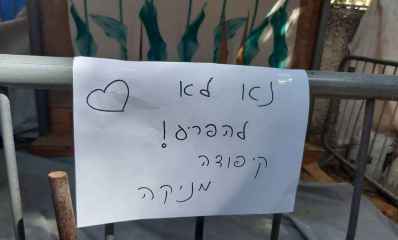 נא לא
להפריע!
קיפודה
מניקה